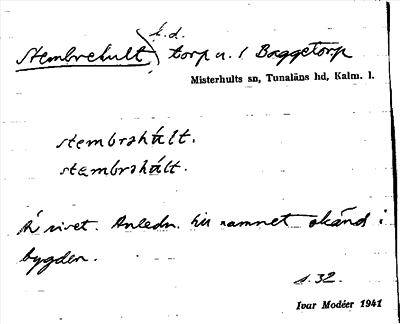 Stembrehult, f.d. torp u. 1 Baggetorp
Misterhults sn, Tunaläns hd, Kalm. l.
stembrəhúlt.
stæmbrəhúlt.
Är rivet. Anledn. till namnet okänd i
bygden.
s. 32.
Ivar Modéer 1941